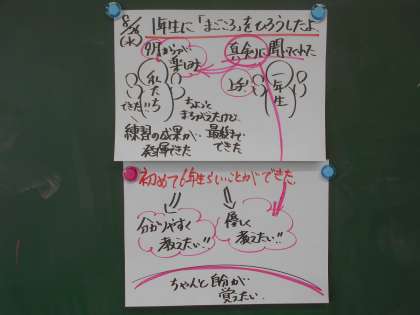 8/28
(水)
1年生に「まごころ」をひろうしたよ。
9月からが
楽しみ
真剣に聞いてくれた
私たち
できた!!
上手!
一年生
ちょっと
まちがえたけど、
最後まで
できた。
練習の成果が
発揮できた
初めて6年生らしいことができた。
分かりやすく
教えたい!!
優しく
教えたい!!
ちゃんと自分が
覚えたい。